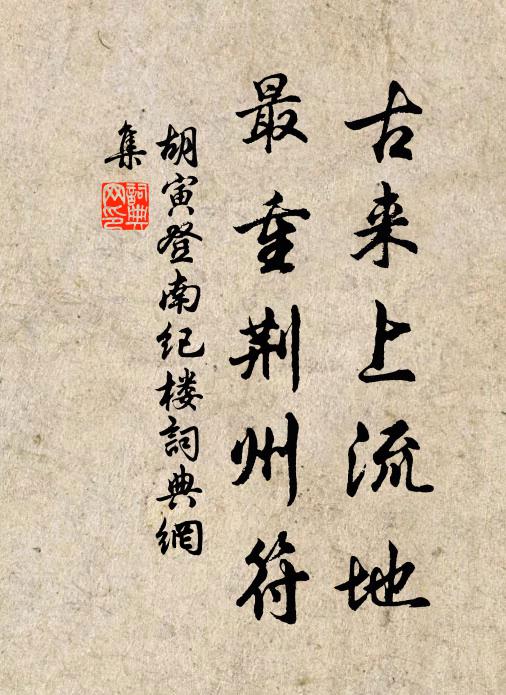 古来上流地
最重荆州符
胡寅登南纪楼詞典網
集
詞典
网印